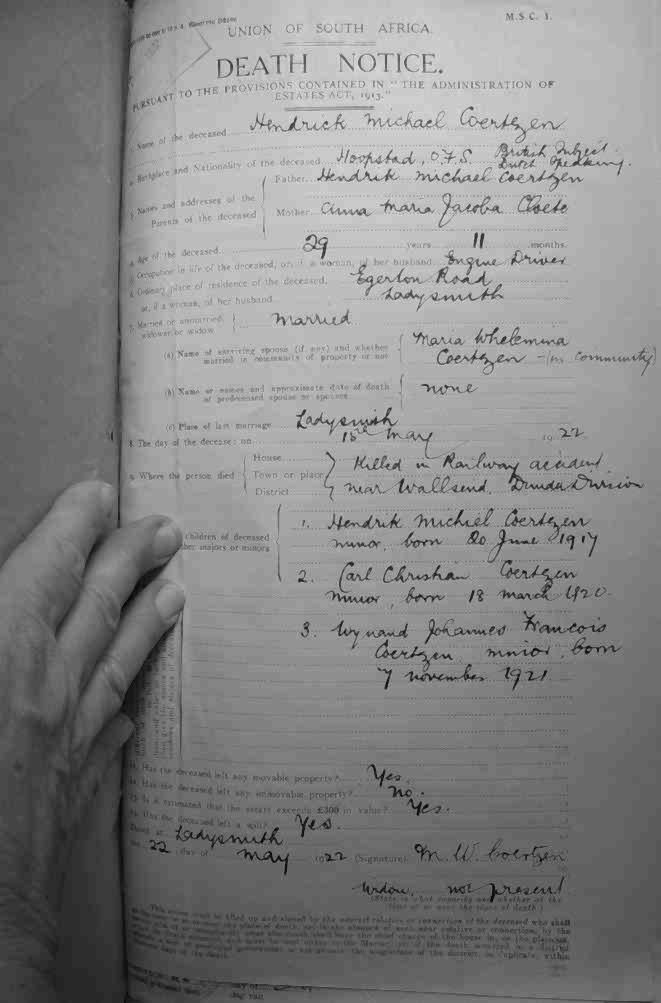 M.S.C. 1.
UNION OF SOUTH AFRICA.
DEATH NOTICE.
PURSUANT TO THE PROVISIONS CONTAINED IN "THE ADMINISTRATION OF
ESTATES ACT, 1913."
1. Name of the deceased Hendrick Michael Coertzen
2. Birthplace and Nationality of the deceased Hoopstad, O.F.S. British Subject.
Dutch Speaking.
3. Names and addresses of the
Parents of the deceased
Father Hendrik Michael Coertzen
Mother Anna Maria Jacoba Cloete
4. Age of the deceased 29 years 11 months.
5. Occupation in life of the deceased, or, if a woman, of her husband Engine Driver
6. Ordinary place of residence of the deceased, Egerton Road
or, if a woman, of her husband Ladysmith
7. Married or unmarried,
widower or widow Married
(a) Name of surviving spouse (if any) and whether
married in community of property or not
Maria Whelemina
Coertzen - (in community)
(b) Name or names and approximate date of death
of predeceased spouse or spouses
none
(c) Place of last marriage Ladysmith
8. The day of the decease: on 18th May 1922
9. Where the person died
House
Town or place
District
Killed in Railway accident
near Wallsend, Dundee Division
children of deceased
majors or minors
1. Hendrik Michiel Coertzen
minor, born 20 June 1917
2. Carl Christian Coertzen
minor, born 18 March 1920.
3. Wynand Johannes Francois
Coertzen, minor, born
7 November 1921
Has the deceased left any movable property? Yes.
Has the deceased left any immovable property? No.
Is it estimated that the estate exceeds £300 in value? Yes.
Has the deceased left a will? Yes.
Dated at Ladysmith
the 22 day of May 1922 (Signature) M. W. Coertzen
Widow, not present
(State in what capacity and whether at the
time of or near the place of death.)